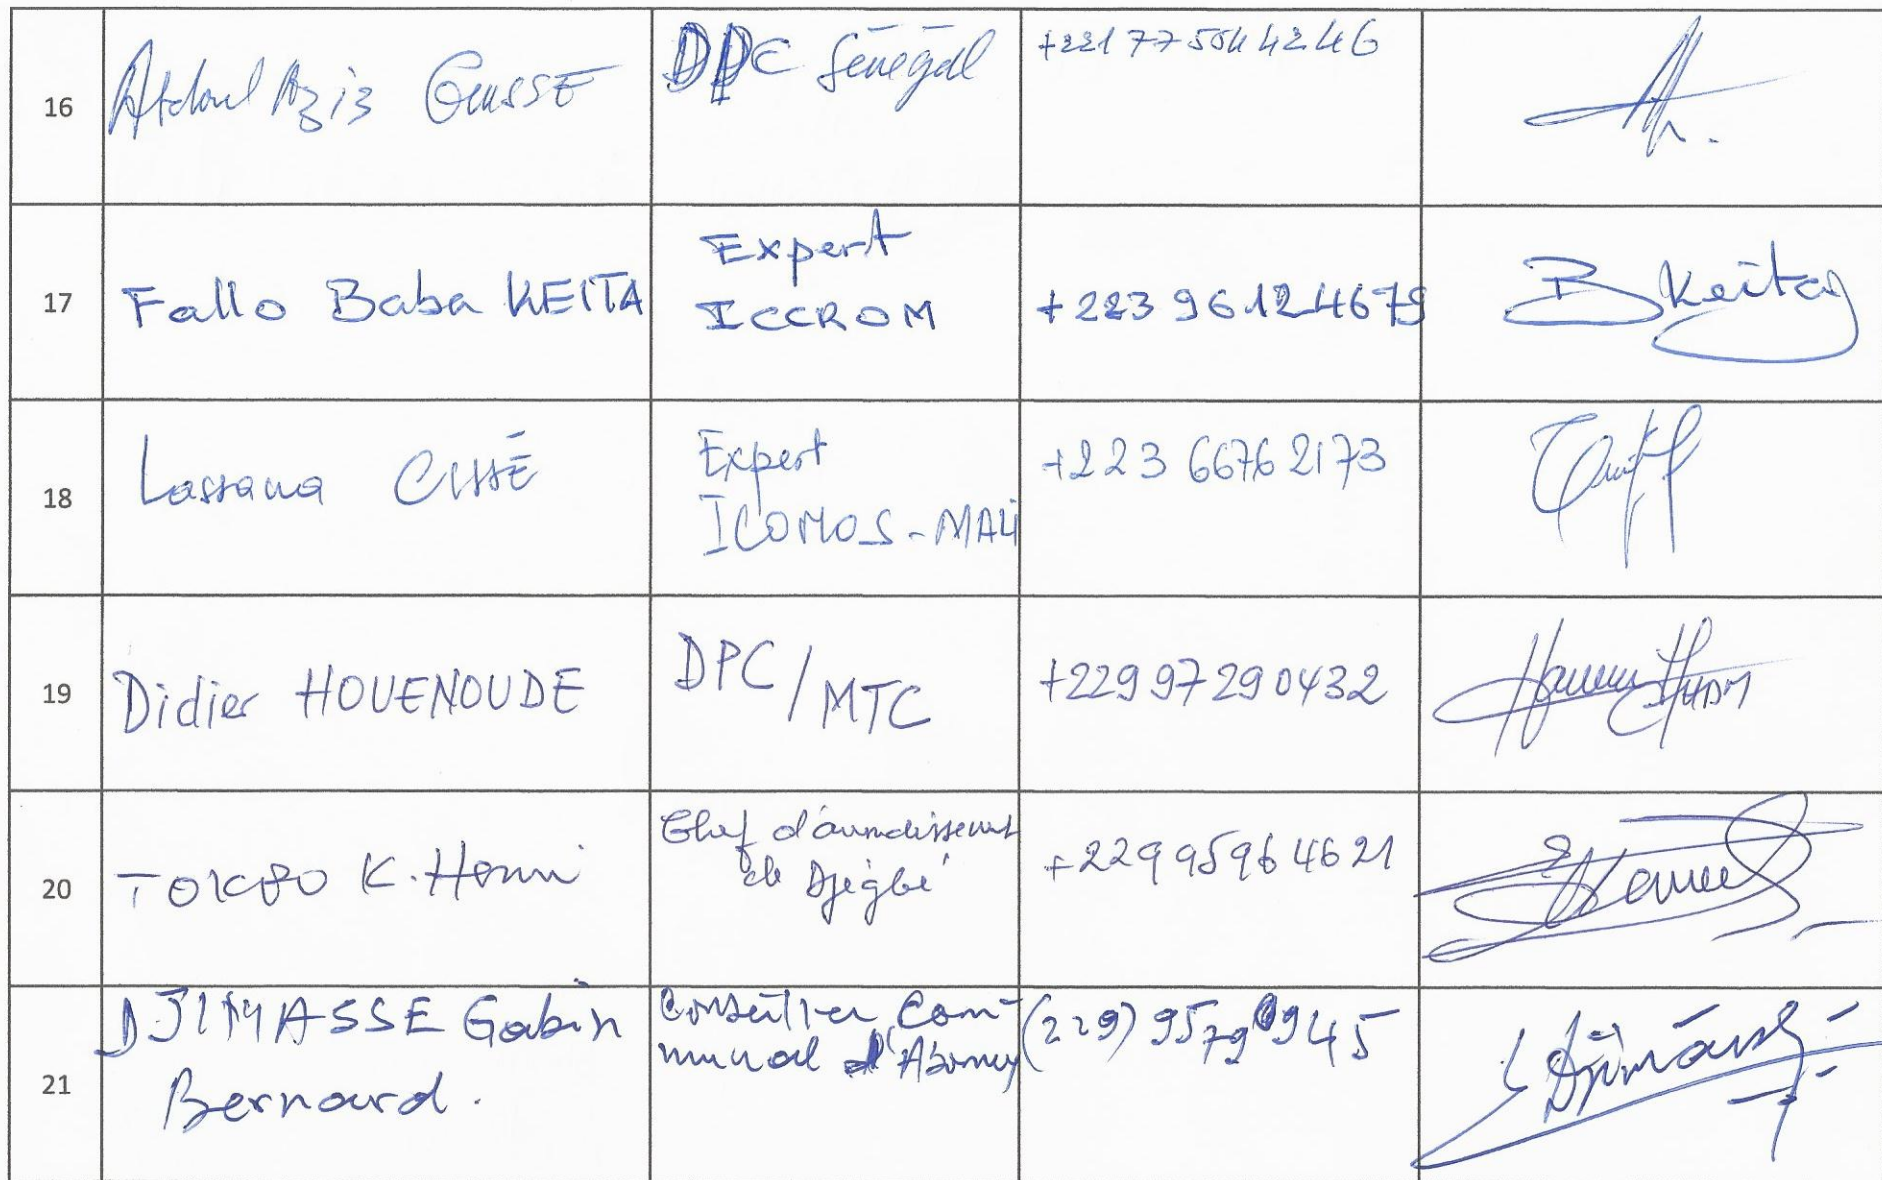 16
Abdoul Aziz GUISSÉ
DPC Sénégal
+221 77 504 42 46
17
Fallo Baba KEITA
Expert
ICCROM
+223 96124679
B Keita
18
Lassana CISSÉ
Expert
ICOMOS-MALI
+223 6676 2173
19
Didier HOUENOUDE
DPC/MTC
+229 97 29 0432
20
TOKPO K. Henri
Chef d'arrondissement
de Djègbé
+229 95964621
21
DJIMASSE Gabin
Bernard.
Conseiller Com-
munal d'Abomey
(229) 95799945